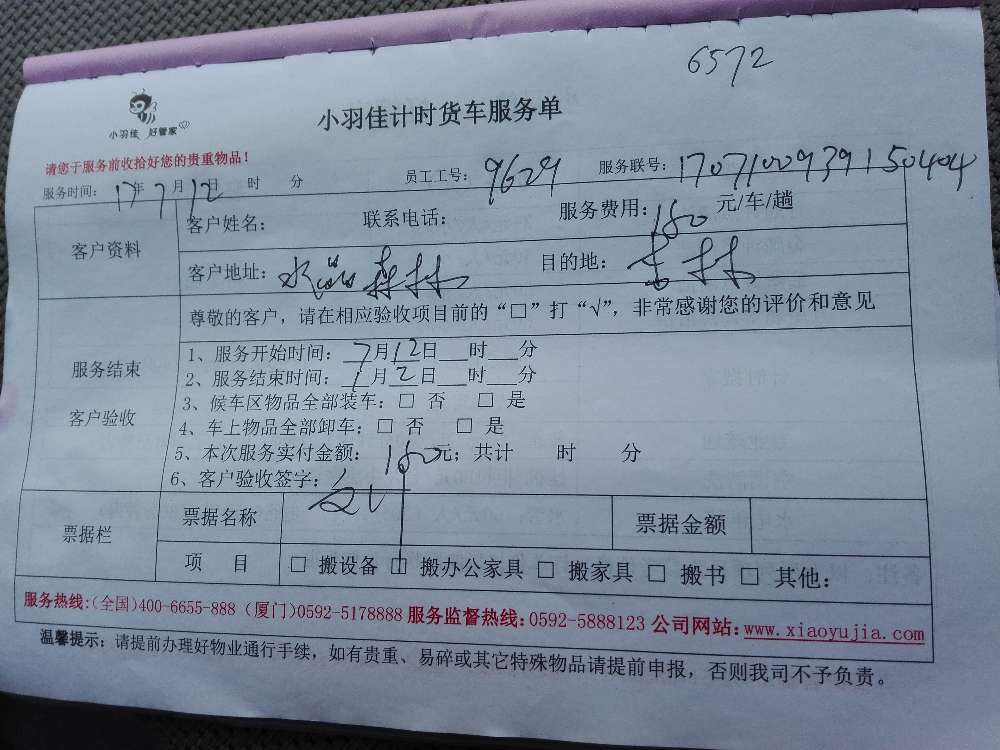 6572
小羽佳 好管家
小羽佳计时货车服务单
请您于服务前收拾好您的贵重物品！
服务时间：17年7月12日 时 分 员工工号：9629 服务联号：1707100939150404
客户资料
客户姓名： 联系电话： 服务费用：180元/车/趟
客户地址：森林 目的地：林
尊敬的客户，请在相应验收项目前的“□”打“√”，非常感谢您的评价和意见
服务结束
客户验收
1、服务开始时间：7月12日___时___分
2、服务结束时间：7月12日___时___分
3、候车区物品全部装车：□ 否 □ 是
4、车上物品全部卸车：□ 否 □ 是
5、本次服务实付金额：180元；共计 时 分
6、客户验收签字：
票据栏
票据名称 票据金额
项 目 □ 搬设备 □ 搬办公家具 □ 搬家具 □ 搬书 □ 其他：
服务热线:(全国)400-6655-888 (厦门)0592-5178888 服务监督热线：0592-5888123 公司网站：www.xiaoyujia.com
温馨提示：请提前办理好物业通行手续，如有贵重、易碎或其它特殊物品请提前申报，否则我司不予负责。